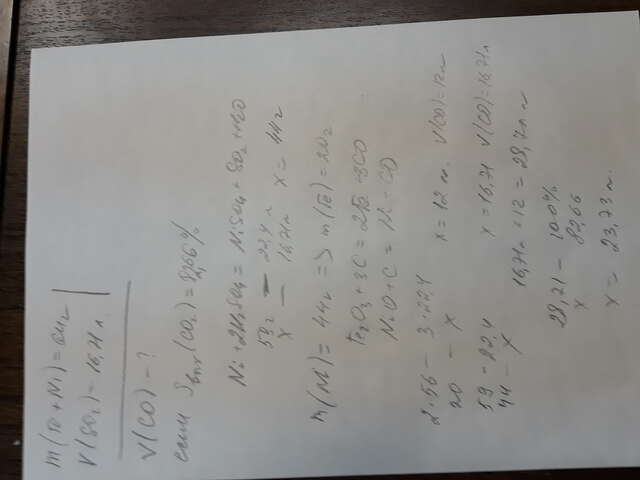 m(Fe+Ni)=64г
V(SO₂)=16,71л
V(CO)-?
если Sвых(CO₂)=82,66%
Ni+2H₂SO₄=NiSO₄+SO₂+H₂O
59г — 22,4л
x — 16,71л x=44г
m(Ni)=44г => m(Fe)=20г
Fe₂O₃+3C=2Fe+3CO
NiO+C=Ni+CO
2·56 - 3·22,4
20 - x x=12л. V(CO)=12л
59-22,4
44-x x=16,71 V(CO)=16,71л
16,71л+12=28,71л
28,71 - 100%
x 82,66
x= 23,73л.